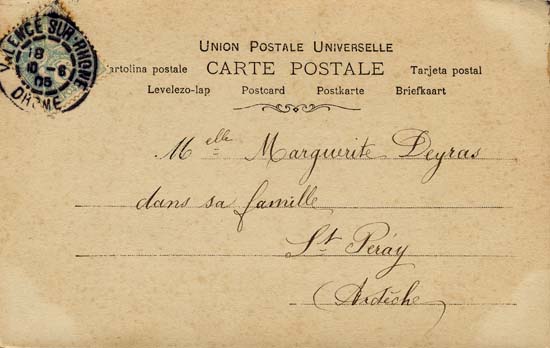 VALENCE SUR-RHONE
18
10 - 6
05
DROME
UNION POSTALE UNIVERSELLE
Cartolina postale CARTE POSTALE Tarjeta postal
Levelezo-lap Postcard Postkarte Briefkaart
Melle Marguerite Deyras
dans sa famille
St Péray
Ardèche